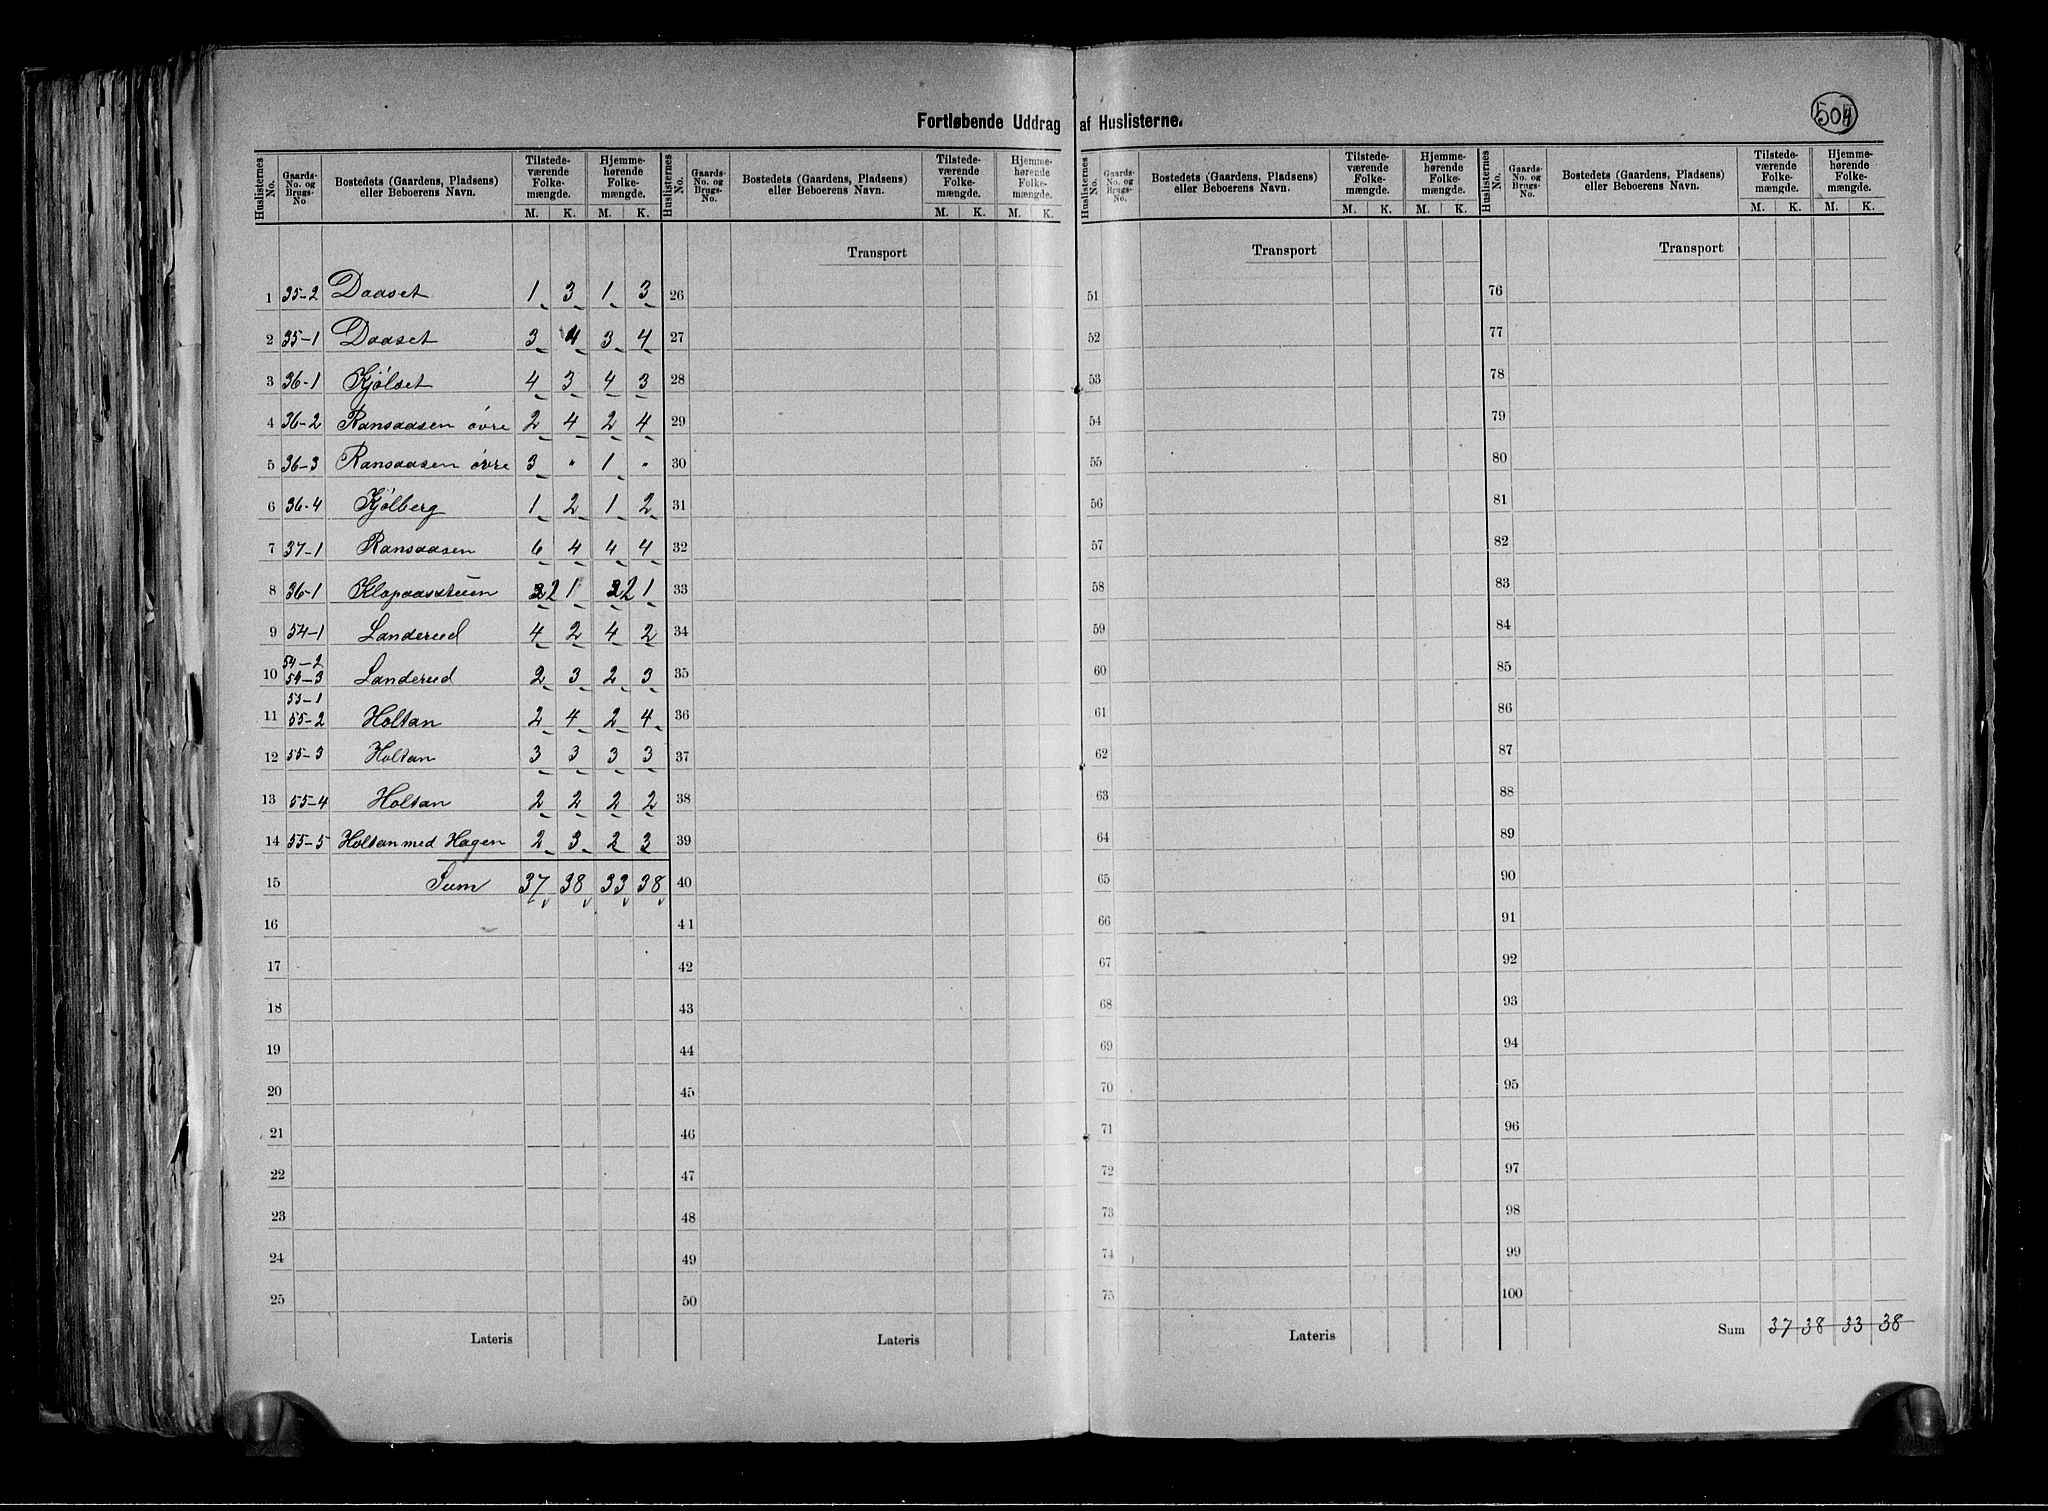 Fortløbende Uddrag af Huslisterne.
504
Huslisternes No. | Gaards-No. og Brugs-No | Bostedets (Gaardens, Pladsens) eller Beboerens Navn. | Tilstedeværende Folkemængde. M. K. | Hjemmehørende Folkemængde. M. K.
1 35-2 Daaset 1 3 1 3
2 35-1 Daaset 3 4 3 4
3 36-1 Kjølset 4 3 4 3
4 36-2 Ransaasen øvre 2 4 2 4
5 36-3 Ransaasen øvre 3 " 1 "
6 36-4 Kjølberg 1 2 1 2
7 37-1 Ransaasen 6 4 4 4
8 36-1 Klopaasstuen 2 1 2 1
9 54-1 Landerud 4 2 4 2
54-2
10 54-3 Landerud 2 3 2 3
55-1
11 55-2 Holtan 2 4 2 4
12 55-3 Holtan 3 3 3 3
13 55-4 Holtan 2 2 2 2
14 55-5 Holtan med Hagen 2 3 2 3
15 Sum 37 38 33 38
16
17
18
19
20
21
22
23
24
25
Lateris
Huslisternes No. | Gaards-No. og Brugs-No. | Bostedets (Gaardens, Pladsens) eller Beboerens Navn. | Tilstedeværende Folkemængde. M. K. | Hjemmehørende Folkemængde. M. K.
Transport
26
27
28
29
30
31
32
33
34
35
36
37
38
39
40
41
42
43
44
45
46
47
48
49
50
Lateris
Huslisternes No. | Gaards-No. og Brugs-No. | Bostedets (Gaardens, Pladsens) eller Beboerens Navn. | Tilstedeværende Folkemængde. M. K. | Hjemmehørende Folkemængde. M. K.
Transport
51
52
53
54
55
56
57
58
59
60
61
62
63
64
65
66
67
68
69
70
71
72
73
74
75
Lateris
Huslisternes No. | Gaards-No. og Brugs-No. | Bostedets (Gaardens, Pladsens) eller Beboerens Navn. | Tilstedeværende Folkemængde. M. K. | Hjemmehørende Folkemængde. M. K.
Transport
76
77
78
79
80
81
82
83
84
85
86
87
88
89
90
91
92
93
94
95
96
97
98
99
100
Sum 37 38 33 38